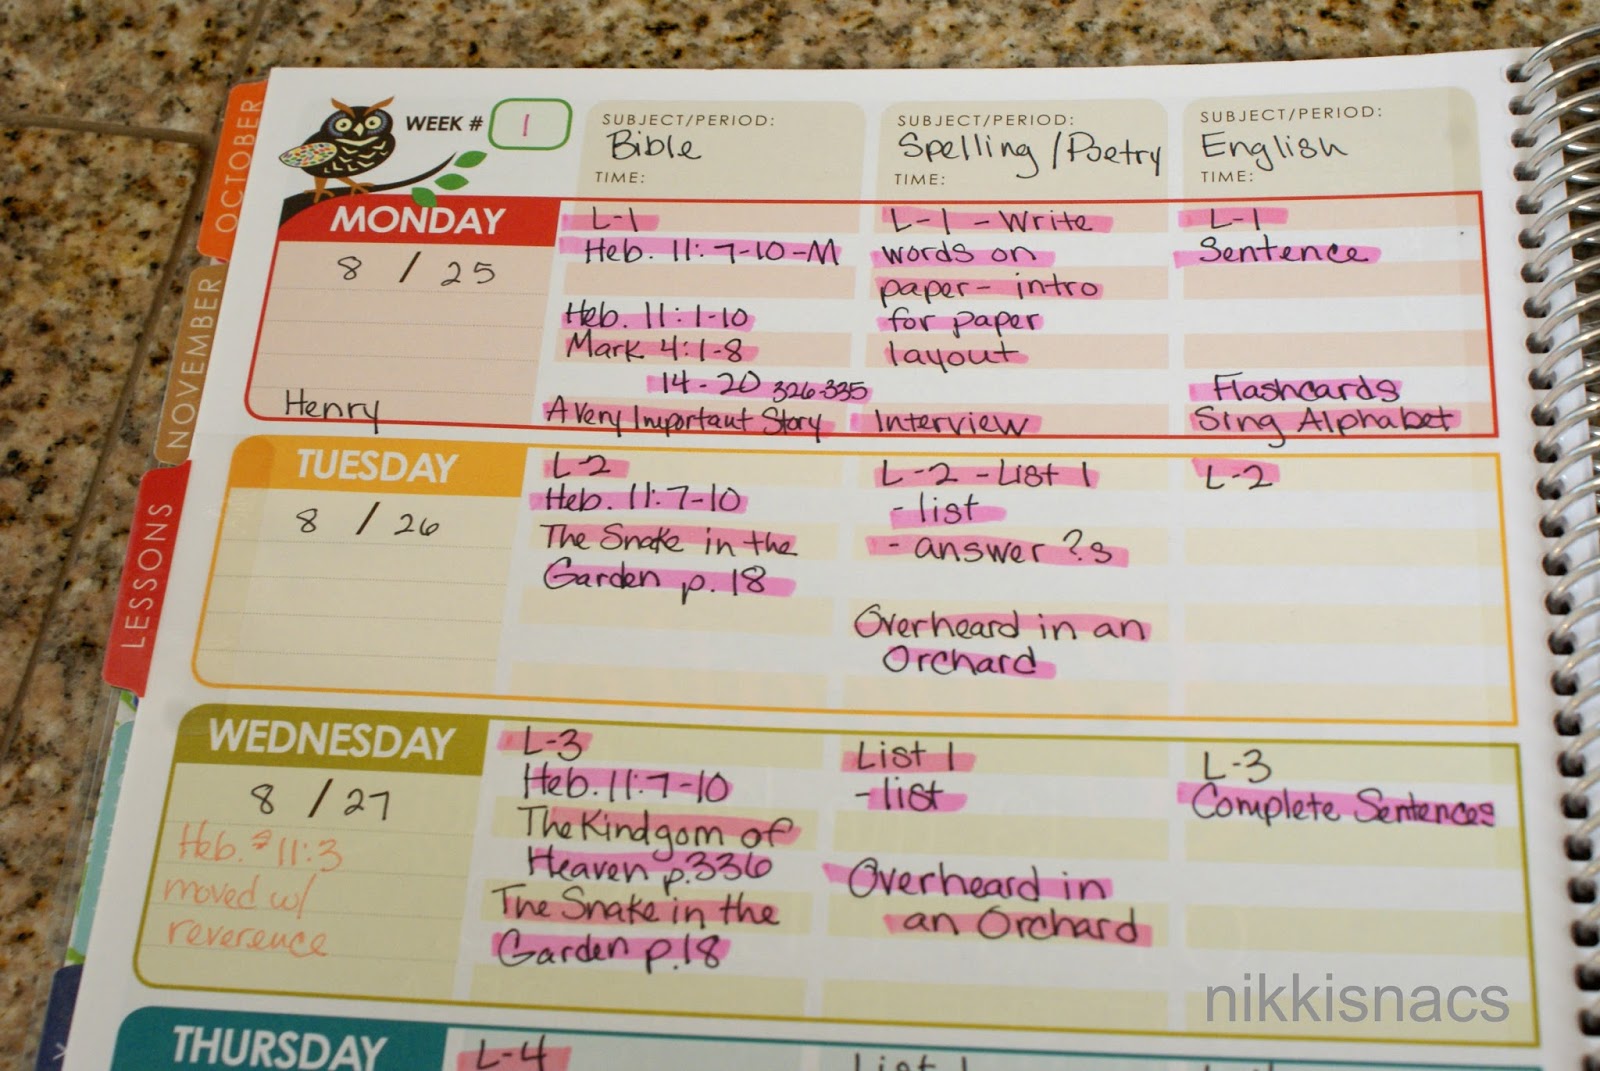 OCTOBER
NOVEMBER
LESSONS
WEEK # 1
SUBJECT/PERIOD:
Bible
TIME:
SUBJECT/PERIOD:
Spelling / Poetry
TIME:
SUBJECT/PERIOD:
English
TIME:
MONDAY
8 / 25
Henry
L-1
Heb. 11: 7-10-M
Heb. 11: 1-10
Mark 4:1-8
14-20 326-335
A Very Important Story
L-1 - Write
words on
paper- intro
for paper
layout
Interview
L-1
Sentence
Flashcards
Sing Alphabet
TUESDAY
8 / 26
L-2
Heb. 11: 7-10
The Snake in the
Garden p. 18
L-2 - List 1
- list
- answer ?s
Overheard in an
Orchard
L-2
WEDNESDAY
8 / 27
Heb. 11:3
moved w/
reverence
L-3
Heb. 11: 7-10
The Kindgom of
Heaven p.336
The Snake in the
Garden p.18
List 1
- list
Overheard in
an Orchard
L-3
Complete Sentences
THURSDAY
L-4
List 1
nikkisnacs